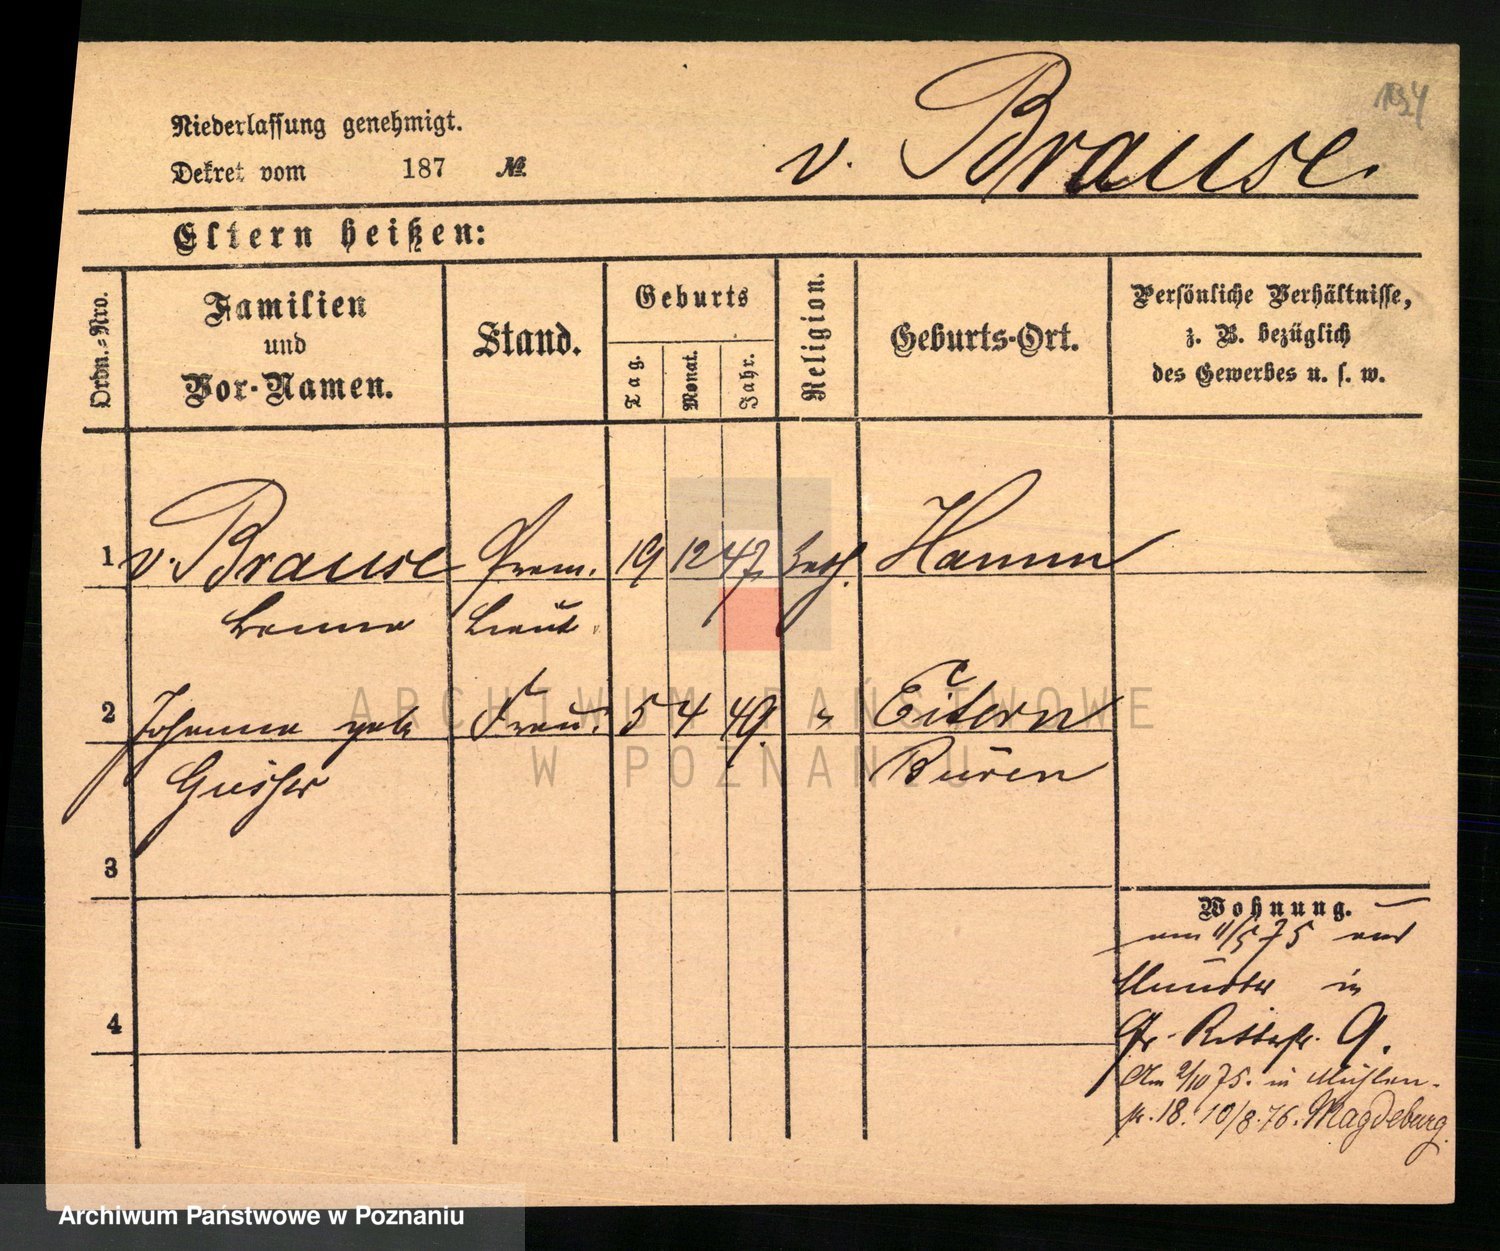 134
Niederlassung genehmigt.
Dekret vom 187 №
v. Brause.
Eltern heißen:
Ordn.-Nro.
Familien
und
Vor-Namen.
Stand.
Geburts
Tag.
Monat.
Jahr.
Religion.
Geburts-Ort.
Persönliche Verhältnisse,
z. B. bezüglich
des Gewerbes u. s. w.
1 v. Brause Prem. 19 12 47 kath. Hamm
Lieut.
2 Johanna geb. Frau. 5 4 49. "
Büren
3
4
Wohnung.
am 11/5 75 aus
Münster in
Gr. Ritterstr. 9.
Am 2/10 75. in Mühlen-
str. 18. 10/8. 76. Magdeburg.
ARCHIWUM PAŃSTWOWE
W POZNANIU
Archiwum Państwowe w Poznaniu